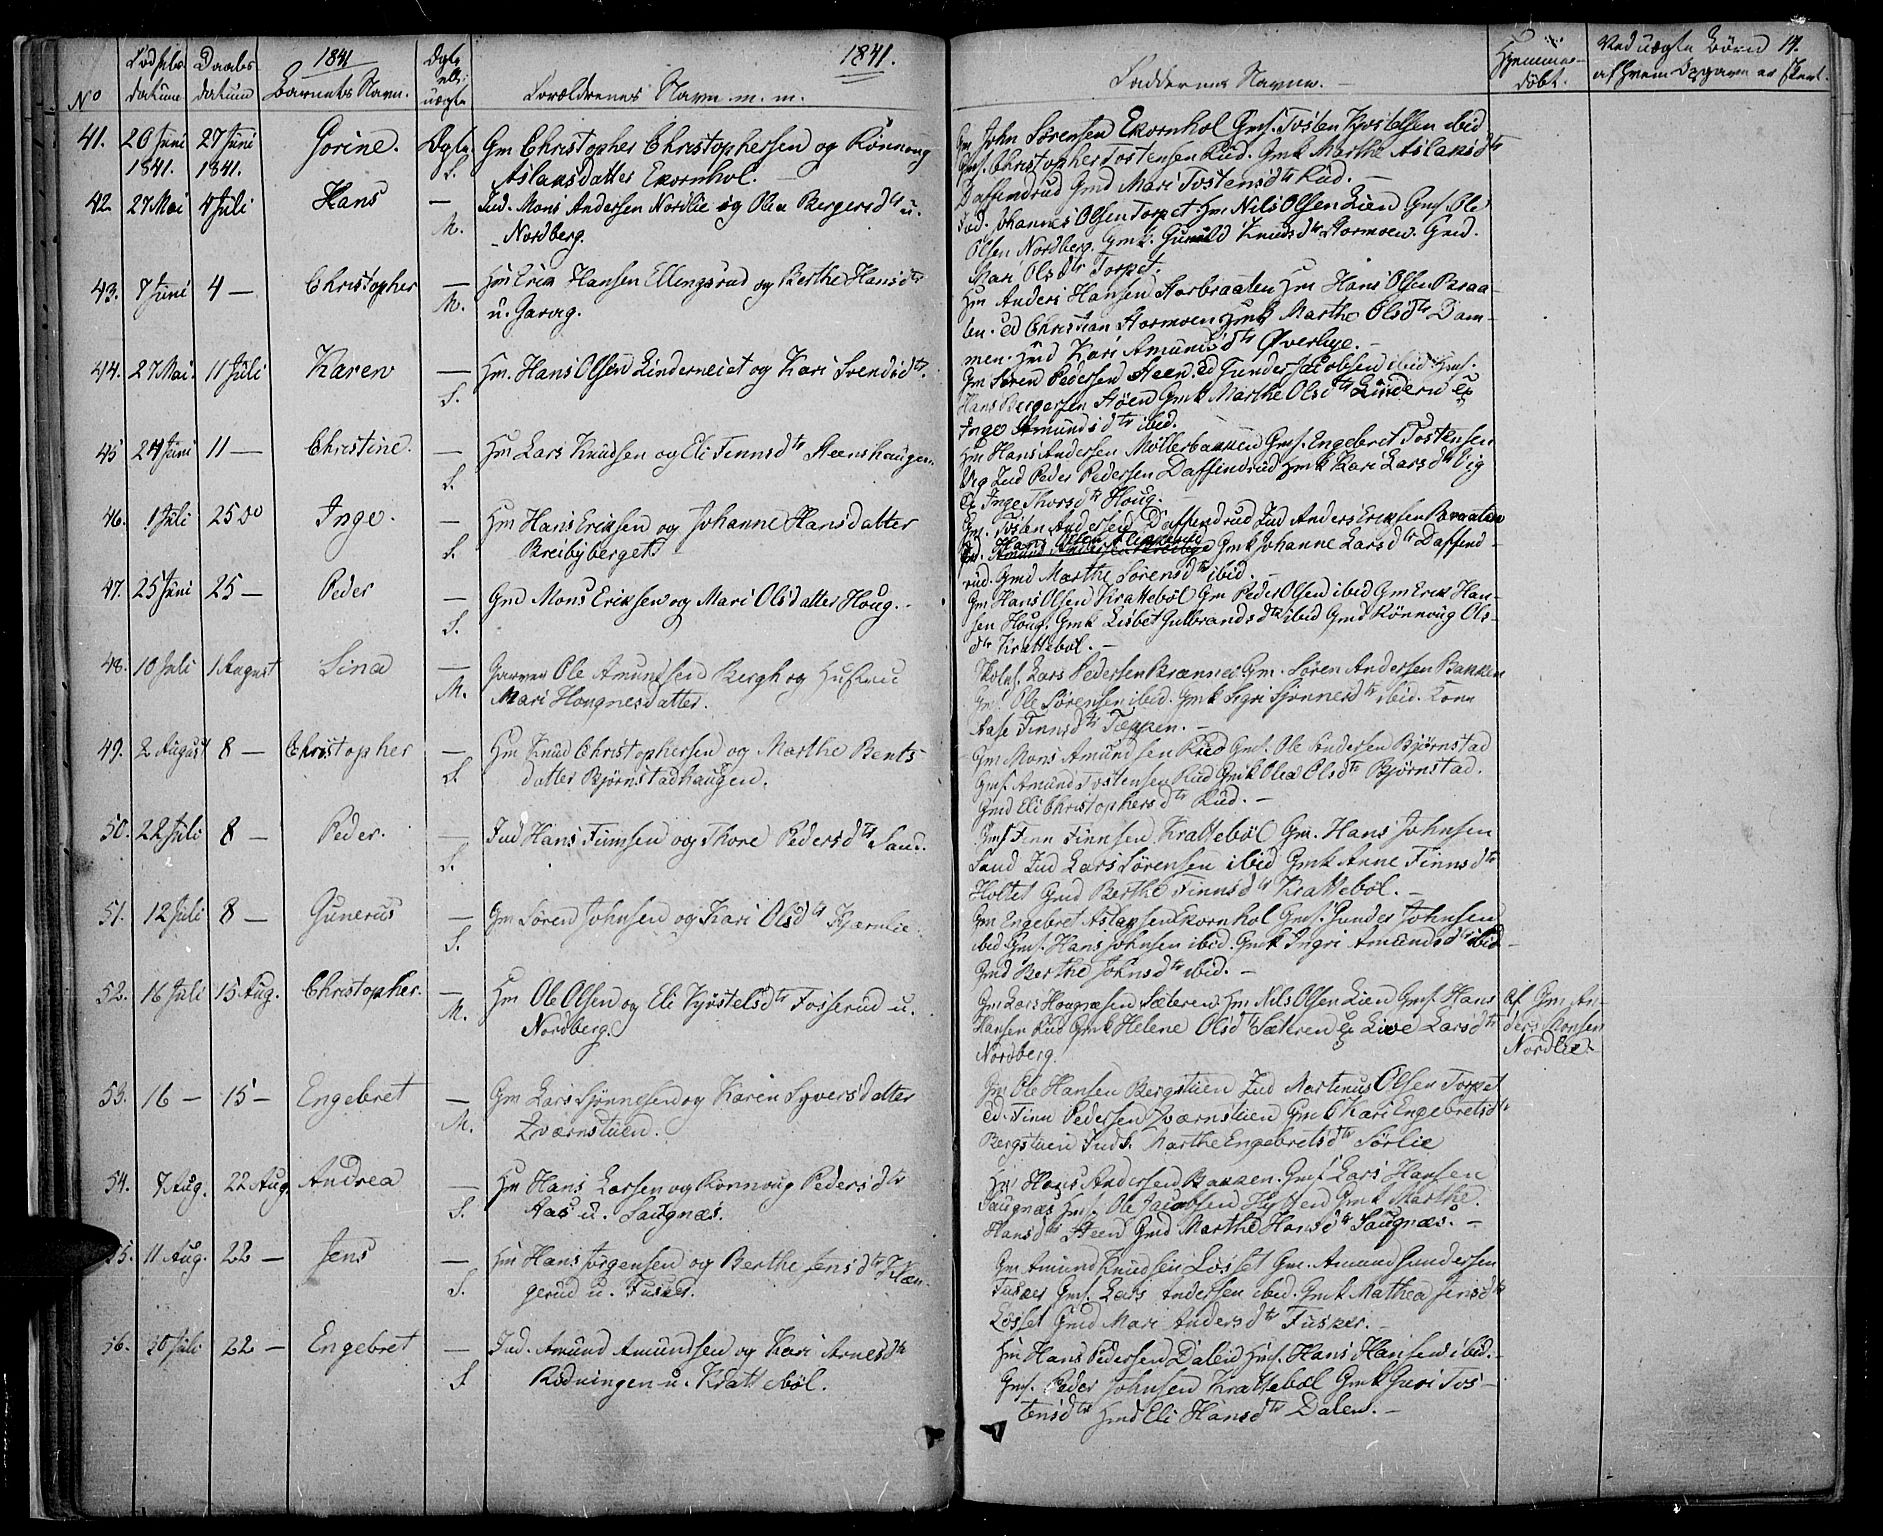 1841
1841.
14.
No
Fødsels-
datum
Daabs-
datum
Barnets Navn.
Ægte
ell.
uægte
Forældrenes Navn m. m.
Faddernes Navne. —
Hjemme-
døbt.
Ved uægte Børn
af hvem Opgaven er skeet.
41. 20 Juni 27 Juni Gorine. Ægte. Gm Christopher Christophersen og Rönnoug
1841. 1841. S. Aslaksdatter Ekornhol. —
Gm John Sørensen Ekornhol Gmf. Tosten Kjostelsen ibid
Gmf. Christopher Tostensen Rud. Gmk Marthe Aslaksdtr
Daffindrud Gmd Mari Tostensdtr Rud. —
42. 27 Mai 4 Juli Hans — Ind. Mons Andersen Nordlie og Olea Bergersdtr u.
M. Nordberg.
Ind. Johannes Olsen Torpet. Hm Nils Olsen Lien Gmf. Ole
Olsen Nordberg. Gmk. Gunild Knudsdtr Stormoen. Gmd.
Mari Olsdtr Torpet.
43. 7 Juni 4 — Christopher — Hm Erik Hansen Ellingsrud og Berthe Hansdtr
M. u. Garvig.
Hm Anders Hansen Storbraaten Hm Hans Olsen Braa-
ten. Ed Christian Stormoen Hmk Marthe Olsdtr Dam-
men. Hmd Kari Amundsdtr Øverbye. —
44. 27 Mai. 11 Juli Karen — Hm. Hans Olsen Linderneiet og Kari Svendsdtr.
S.
Gm Søren Pedersen Steen. Ed Gunder Jacobsen ibid. Gmf.
Hans Bergersen Støen Gmk Marthe Olsdtr Lindern Ep
Inge Amundsdtr ibid.
45 24 Juni 11 — Christine. — Hm Lars Knudsen og Eli Finnsdtr Steenshaugen.
S.
Hm Hans Andersen Møllerbakken Gmf. Engebret Tostensen
Vig Ind Peder Pedersen Daffindrud Hmk Kari Larsdtr Vig
Ep Inge Thorsdtr Houg.
46. 1 Juli 25 do Inge. — Hm Hans Eriksen og Johanne Hansdatter
S. Breibyberget.
Gm. Tosten Andersen Daffindrud Ind Anders Eriksen Braaten
Hans Olsen
Ed. Amund Andersen Breibye Gmk Johanne Larsdtr Daffind-
rud. Gmd Marthe Sørensdtr ibid. —
47. 25 Juni 25 — Peder — Gmd Mons Eriksen og Mari Olsdatter Houg. —
S.
Gm Hans Olsen Krattebøl Gm Peder Olsen ibid Gm Erik Han-
sen Houg. Gmk Lisbet Gulbrandsdtr ibid Gmd Rönnoug Ols-
dtr Krattebøl. —
48. 10 Juli 1 August Lina — Garver Ole Amundsen Bergh og Hustru
M. Mari Hougnesdatter.
Skolel. Lars Pedersen Brænner. Gm. Søren Andersen Bakken
Gmf. Ole Sørensen ibid. Gmk Sigri Sjønnesdtr ibid. Kone
Aase Finnsdtr Toppen. —
49. 2 August 8 — Christopher — Hm Knud Christophersen og Marthe Bents-
S. datter Bjørnstadhaugen.
Gm Mons Amundsen Rud Gmf. Ole Andersen Bjørnstad
Gmf. Amund Tostensen Rud Gmk Olea Olsdtr Bjørnstad.
Gmd Eli Christophersdtr Rud. —
50. 22 Juli 8 — Peder. — Ind Hans Finnsen og Thore Pedersdtr Sand.
S.
Gmf Finn Finnsen Krattebøl Gm. Hans Johnsen
Sand Ind Lars Sørensen ibid Gmk Anne Finnsdtr
Holtet Gmd Berthe Finnsdtr Krattebøl. —
51. 12 Juli 8 — Gunerus — Gm Søren Johnsen og Kari Olsdtr Kjærnlie.
S.
Gm Engebret Aslaksen Ekornhol Gmf. Gunder Johnsen
ibid. Gmf. Hans Johnsen ibid. Gmk Ingri Amundsdtr ibid —
Gmd Berthe Johnsdtr ibid. —
52. 16 Juli 15 Aug. Christopher. — Hm Ole Olsen og Eli Kjøstelsdtr Fosserud u.
M. Nordberg.
Gm Lars Hougnesen Sæteren. Hm Nils Olsen Lien Gmf. Hans
Hansen Rud Gmk Helene Olsdtr Sæteren Ep Live Larsdtr
Nordberg.
af Gm An-
ders Monsen
Nordlie.
53. 16 — 15 — Engebret — Gm Lars Sjønnesen og Karen Syversdatter
M. Kværnstuen.
Gm Ole Hansen Bergstuen Ind Martinus Olsen Torpet
Ed. Finn Pedersen Kværnstuen Gmk Kari Engebretsdtr
Bergstuen Indk. Marthe Engebretsdtr Sørlie
54. 7 Aug. 22 Aug. Andrea — Hm Hans Larsen og Rønnoug Pedersdtr
S. Aas u. Saugnæs.
Hm Hans Andersen Bakken. Gmf Lars Hansen
Saugnæs Hmf. Ole Jacobsen Hytten Gmk Marthe
Hansdtr Steen Gmd Marthe Hansdtr Saugnæs. —
55. 11 Aug. 22 — Jens — Hm Hans Jørgensen og Berthe Jensdtr Klæn-
S. gerud u. Fusker.
Gm Amund Knudsen Løsset Gm. Amund Gundersen
Fusker Gmf. Lars Andersen ibid. Gmk Mathea Jensdtr
Løsset Gmd Mari Andersdtr Fusker. —
56. 30 Juli 22 — Engebret — Ind. Amund Amundsen og Kari Arnesdtr
S. Rødningen u. Krattebøl.
Hm Hans Pedersen Dalen Hmf. Hans Hansen ibid. —
Gmf. Peder Johnsen Krattebøl Gmk Guri Tos-
tensdtr Hmd Eli Hansdtr Dalen. —